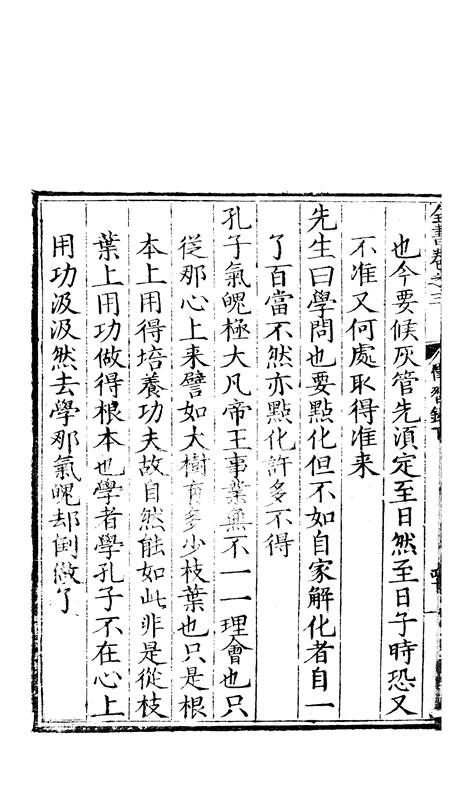 全書卷之三 傳習錄下
也今要候灰管先須定至日然至日子時恐又
不准又何處取得准來
先生曰學問也要點化但不如自家解化者自一
了百當不然亦點化許多不得
孔子氣魄極大凡帝王事業無不一一理會也只
從那心上來譬如大樹有多少枝葉也只是根
本上用得培養功夫故自然能如此非是從枝
葉上用功做得根本也學者學孔子不在心上
用功汲汲然去學那氣魄却倒做了